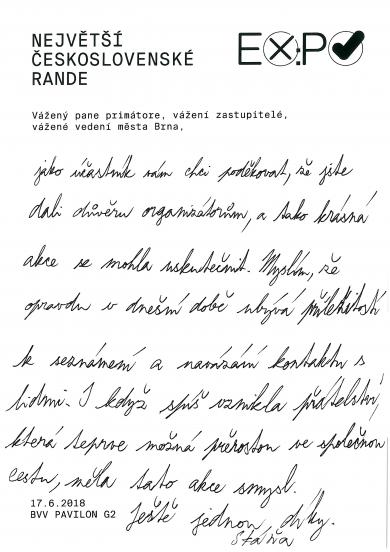 NEJVĚTŠÍ
ČESKOSLOVENSKÉ
RANDE
EX:PO
Vážený pane primátore, vážení zastupitelé,
vážené vedení města Brna,
jako účastník vám chci poděkovat, že jste
dali důvěru organizátorům, a tako krásná
akce se mohla uskutečnit. Myslím, že
opravdu v dnešní době ubývá příležitostí
k seznámení a navázání kontaktu s
lidmi. I když spíš vznikla přátelství,
která teprve možná přerostou ve společnou
cestu, měla tato akce smysl.
Ještě jednou, díky.
17.6.2018
BVV PAVILON G2
Stáňa